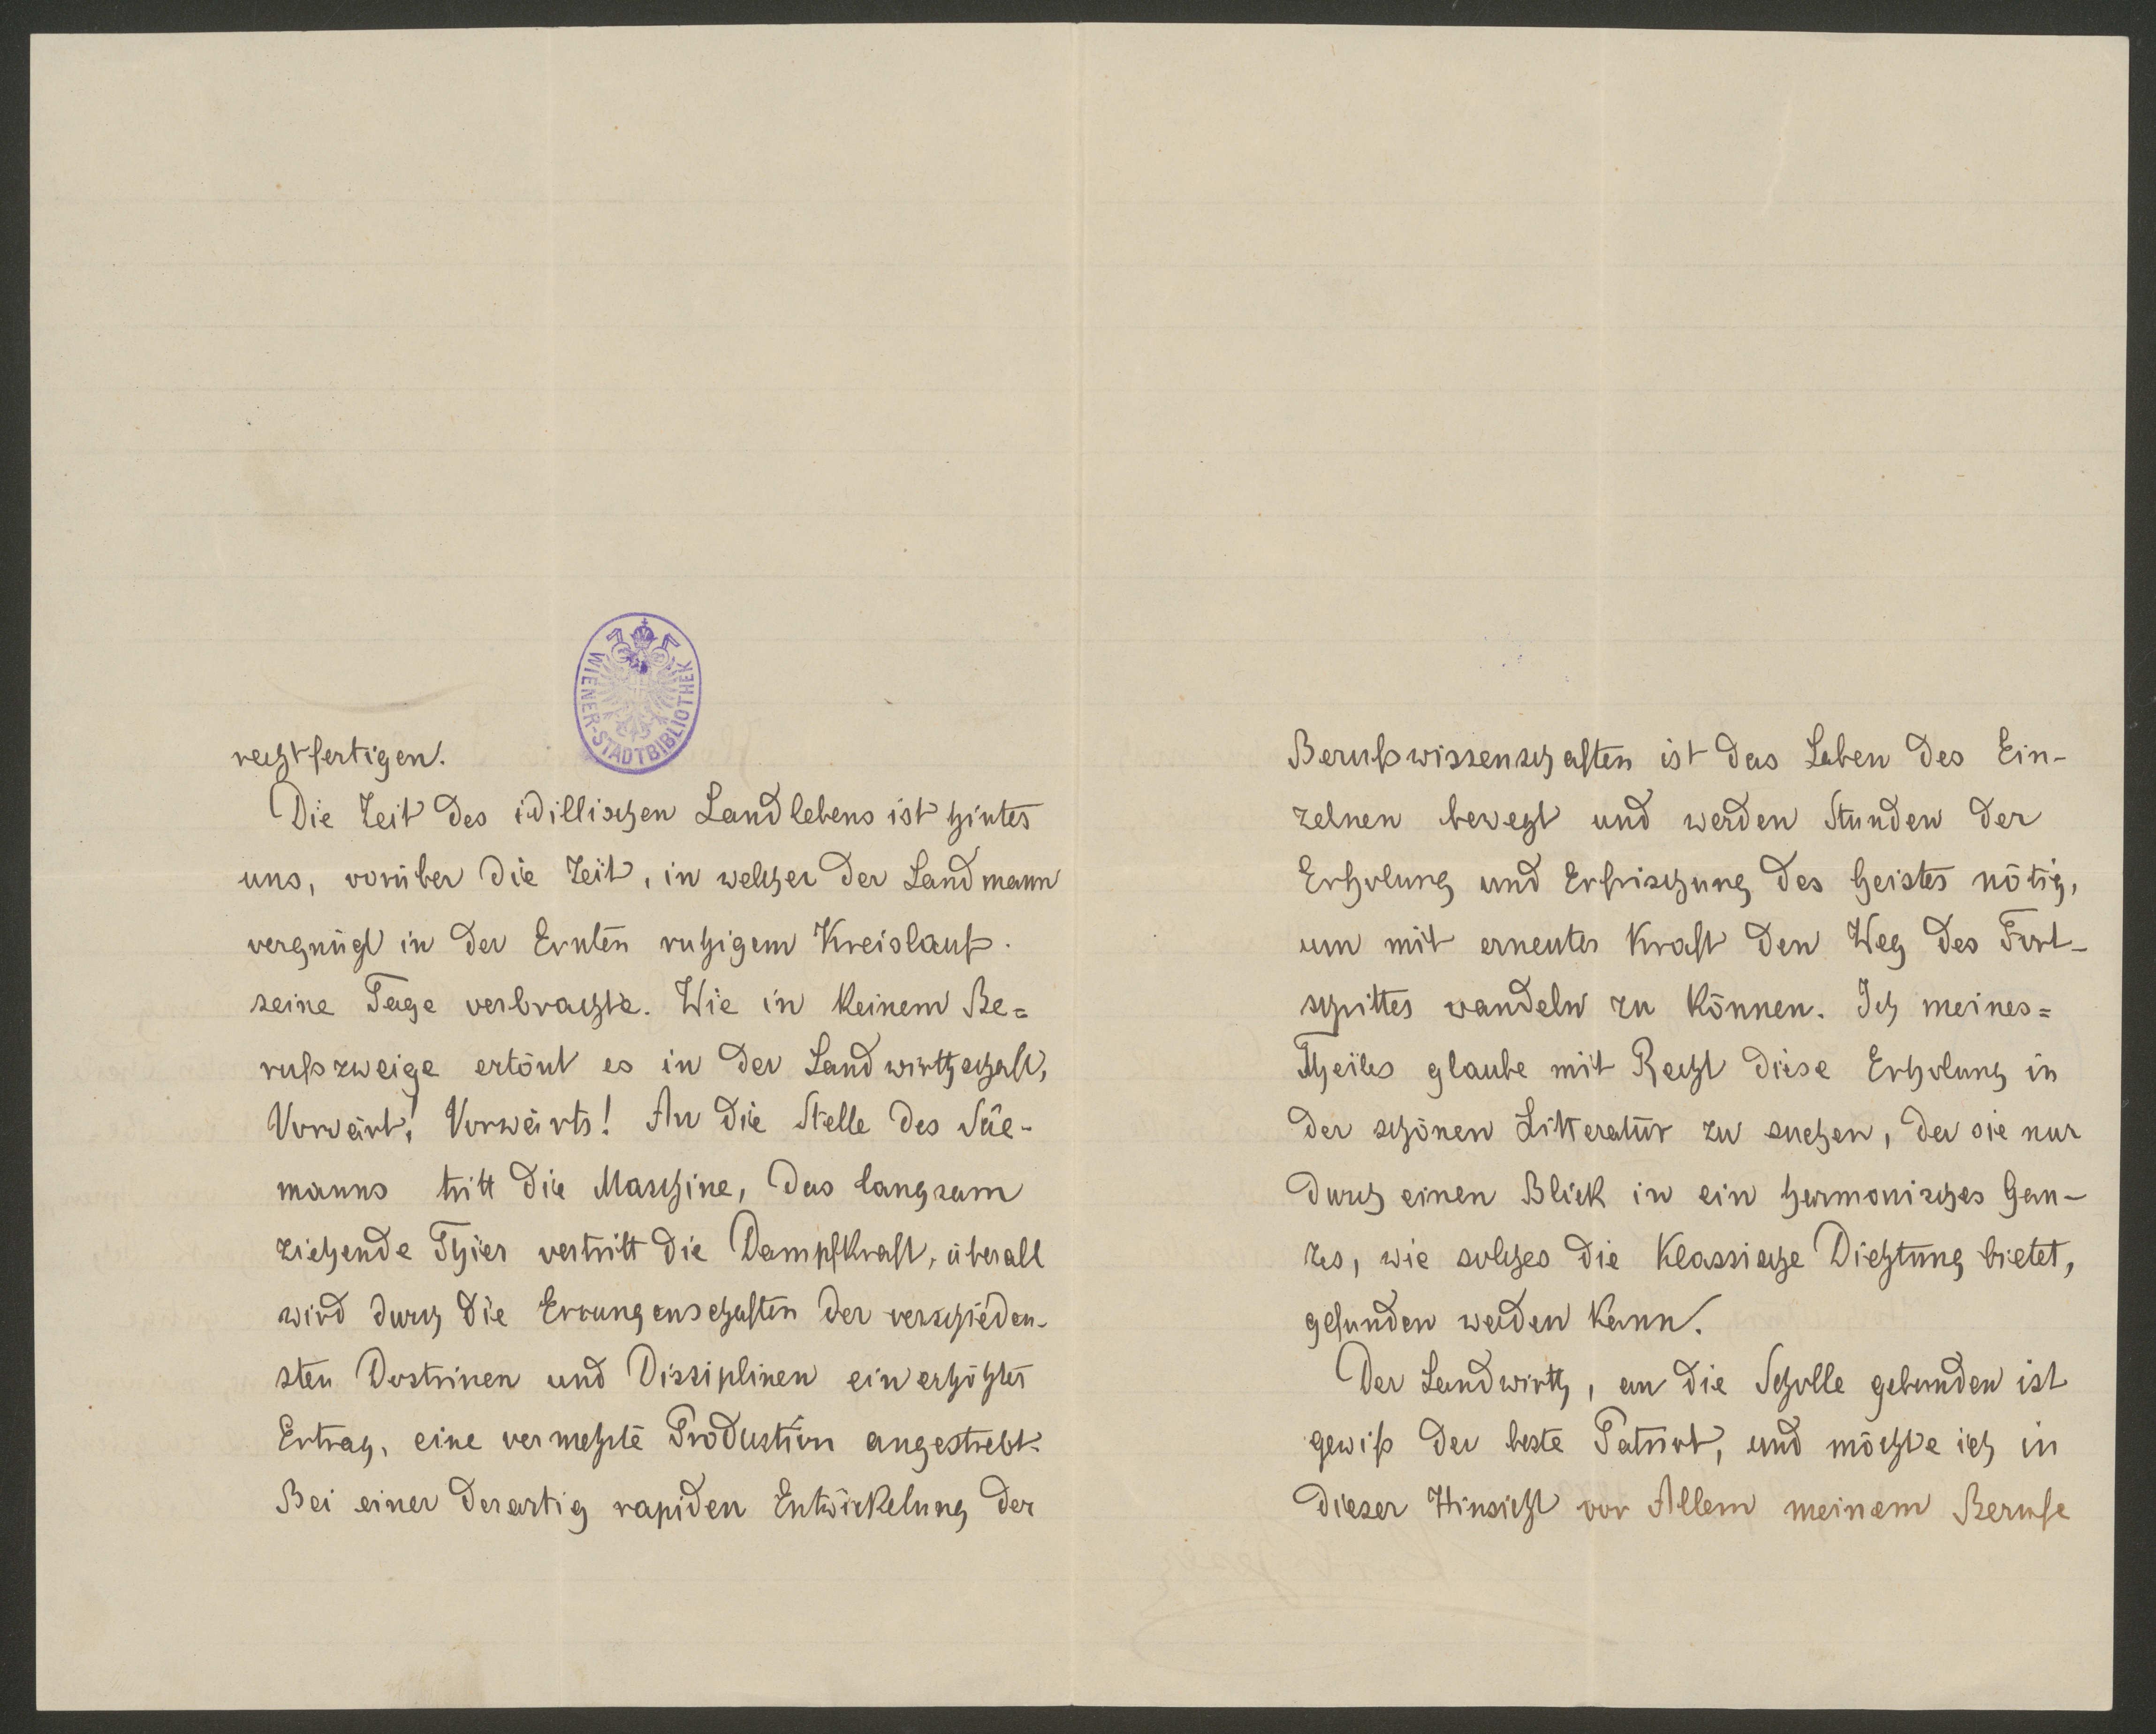 WIENER-STADTBIBLIOTHEK
rechtfertigen.
Die Zeit des idillischen Landlebens ist hinter
uns, vorüber die Zeit, in welcher der Landmann
vergnügt in der Ernten ruhigem Kreislauf
seine Tage verbrachte. Wie in keinem Be=
rufszweige ertönt es in der Landwirthschaft,
Vorwärt! Vorwärts! An die Stelle des Säe-
manns tritt die Maschine, das langsam
ziehende Thier vertritt die Dampfkraft, überall
wird durch die Errungenschaften der verschieden-
sten Doctrinen und Dissiplinen ein erhöhter
Ertrag, eine vermehrte Production angestrebt.
Bei einer derartig rapiden Entwickelung der
Berufswissenschaften ist das Leben des Ein-
zelnen bewegt und werden Stunden der
Erholung und Erfrischung des Geistes nötig,
um mit erneuter Kraft den Weg des Fort-
schrittes wandeln zu können. Ich meines=
Theiles glaube mit Recht diese Erholung in
der schönen Litteratur zu suchen, da sie nur
durch einen Blick in ein harmonisches Gan-
zes, wie solches die klassische Dichtung bietet,
gefunden werden kann.
Der Landwirth, an die Scholle gebunden ist
gewiß der beste Patriot, und möchte ich in
dieser Hinsicht vor Allem meinem Berufe